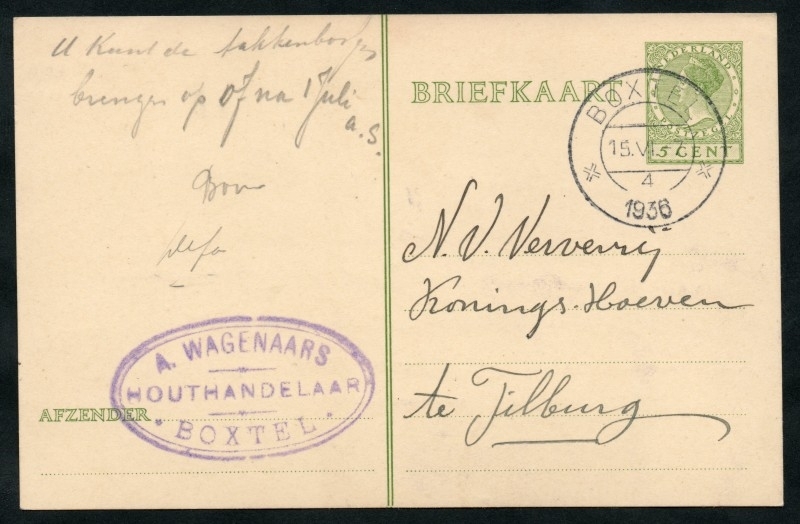 U kunt de takkenbossen
brengen op of na 1 Juli
a.s.
A. WAGENAARS
HOUTHANDELAAR
BOXTEL
AFZENDER
BRIEFKAART
NEDERLAND
5 CENT
BOXTEL
15.VI. 7
4
1936
N.V. Ververij
Konings-Hoeven
te Tilburg